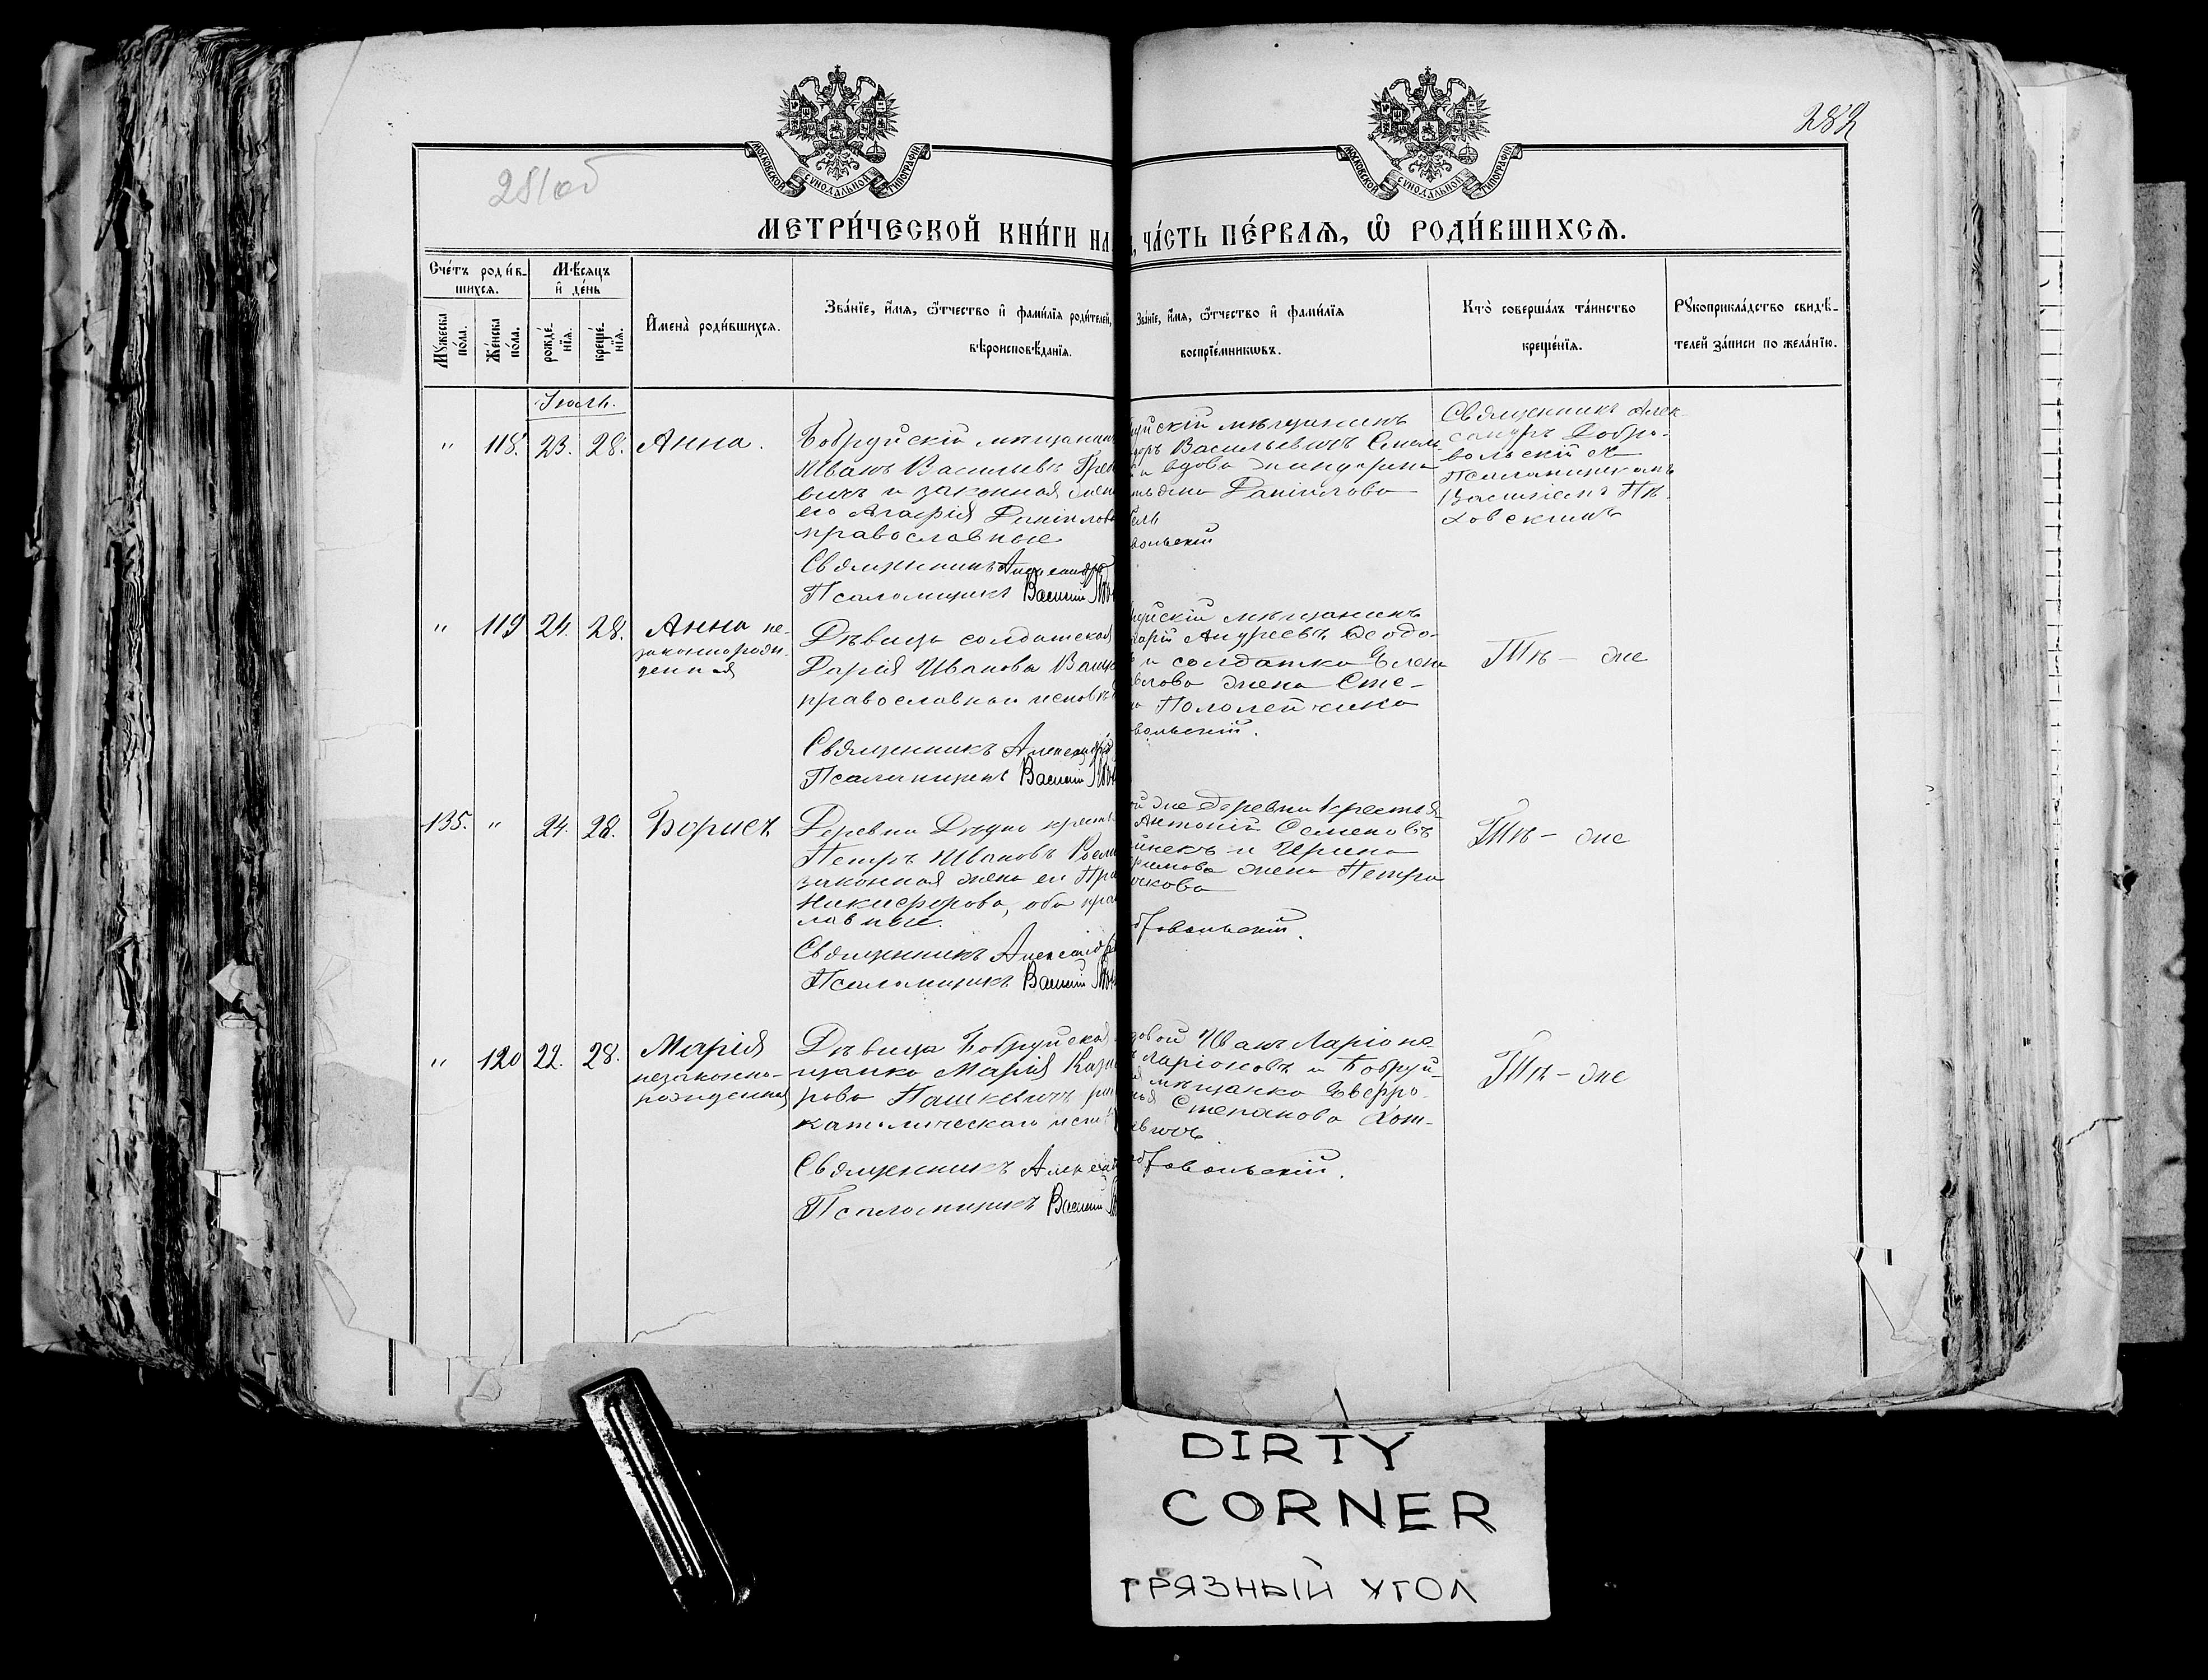 281об
282
МОСКОВСКОЙ СѴНОДАЛЬНОЙ ТИПОГРАФІИ
МОСКОВСКОЙ СѴНОДАЛЬНОЙ ТИПОГРАФІИ
МЕТРИ́ЧЕСКОЙ КНИ́ГИ НА
ЧА́СТЬ ПЕ́РВАѦ, Ѡ РОДИ́ВШИХСѦ.
Сче́тъ роди́в-
шихсѧ.
Мѣ́сяцъ
и де́нь
Мꙋ́жеска по́ла.
Же́нска по́ла.
рожде́нїѧ.
креще́нїѧ.
Имена̀ роди́вшихсѧ.
Зва́нїе, и́мѧ, ѻ́тчество и фами́лїѧ роди́телей,
вѣроисповѣ́данїѧ.
Зва́нїе, и́мѧ, ѻ́тчество и фами́лїѧ
воспрїе́мникѡвъ.
Кто̀ соверша́лъ та́инство
креще́нїѧ.
Рꙋкоприкла́дство свидѣ́-
телей за́писи по жела́нїю.
Іюль.
" 118. 23. 28. Анна.
Бобруйскій мѣщанин
Иванъ Васильевъ
вичъ и законная жен
его Агафія Даніилов
православные
Священникъ Александръ
Псаломщикъ Василій
мѣщанинъ
Васильевичъ
и вдова
Даніилова
вольскій
Священникъ Алек-
сандръ Добро-
вольскій съ
Псаломщикомъ
Василіемъ
" 119 24. 28. Анна не-
законнорож-
денная
Дѣвица солдатская
Дарія Иванова
православнаго исповѣ
Священникъ Александръ
Псаломщикъ Василій
мѣщанинъ
Андреевъ Ѳеодо-
и солдатка Елена
жена Сте-
Пололейчика
вольскій.
Тѣ – же
135. " 24. 28. Борисъ
Деревни крест
Петръ Ивановъ
законная жена его
Никифорова, оба пра
лавные.
Священникъ Александръ
Псаломщикъ Василій
же деревни крестья-
Антоній Семеновъ
и Ирина
жена Петра
добровольскій.
Тѣ – же
" 120 22. 28. Марія
незаконно-
рожденная
Дѣвица Бобруйская
щанка Марія Кази
рова Пашкевичъ ри
католическаго исп
Священникъ Алексан
Псаломщикъ Василій
Иванъ Ларіоно-
Ларіоновъ и Бобруй-
мѣщанка Евфро-
Степанова Хот-
добровольскій.
Тѣ – же
DIRTY
CORNER
ГРЯЗНЫЙ УГОЛ